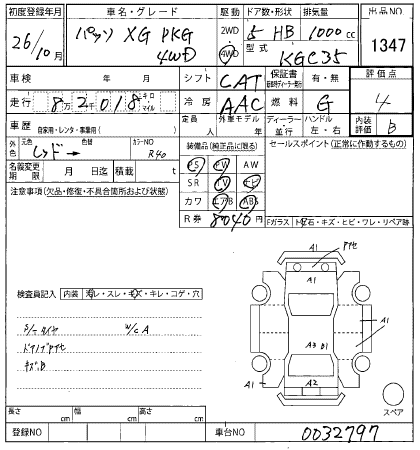 初度登録年月 車名・グレード 駆動 ドア数・形状 排気量 出品NO
26/10月 パッソ XG PKG 4WD 2WD 4WD 5 HB 1000cc 1347
型式 KGC35
車検 年 月 シフト CAT 保証書 有・無 評価点
走行 8万2千018キロ マイル 冷房 AAC 燃料 G 4
車歴 自家用・レンタ・事業用( ) 定員 人 外車モデル 年 ディーラー 並行 ハンドル 左・右 内装評価 B
外色 元色 レッド→ 色替 カラーNO R40 装備品(純正品に限る) セールスポイント(正常に作動するもの)
名義変更期限 月 日迄 積載 t PS PW AW
注意事項(欠品・修復・不具合箇所および状態) SR TV ナビ
カワ エアB ABS
R券 8040円 Fガラス 飛石・キズ・ヒビ・ワレ・リペア跡
A1
A1
検査員記入 内装 汚レ・スレ・キズ・キレ・コゲ・穴
A1
W/C A
A3 B1
キズB
A1 A2
スペア
長さ cm 幅 cm 高さ cm
登録NO 車台NO 0032797